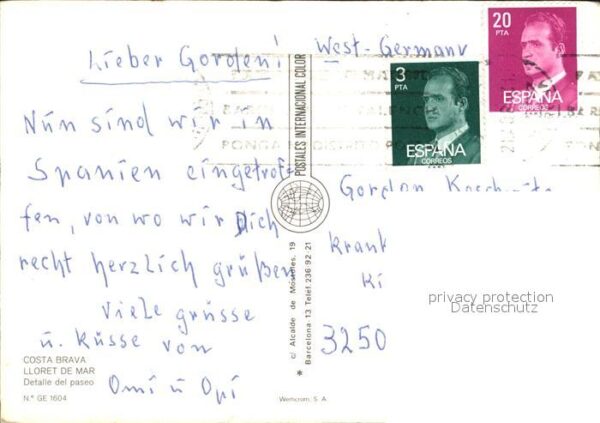 Lieber Gorden!
Nun sind wir in
Spanien eingetrof-
fen, von wo wir Dich
recht herzlich grüßen
Viele grüsse
u. Küsse von
Omi u Opi
COSTA BRAVA
LLORET DE MAR
Detalle del paseo
N.º GE 1604
POSTALES INTERNACIONAL COLOR
c/ Alcalde de Móstoles, 19
Barcelona-13 Teléf. 236 92 21
West-Germany
3 PTA
ESPAÑA
CORREOS
20 PTA
ESPAÑA
CORREOS
Gordon
Krank
Ki
3250
privacy protection
Datenschutz